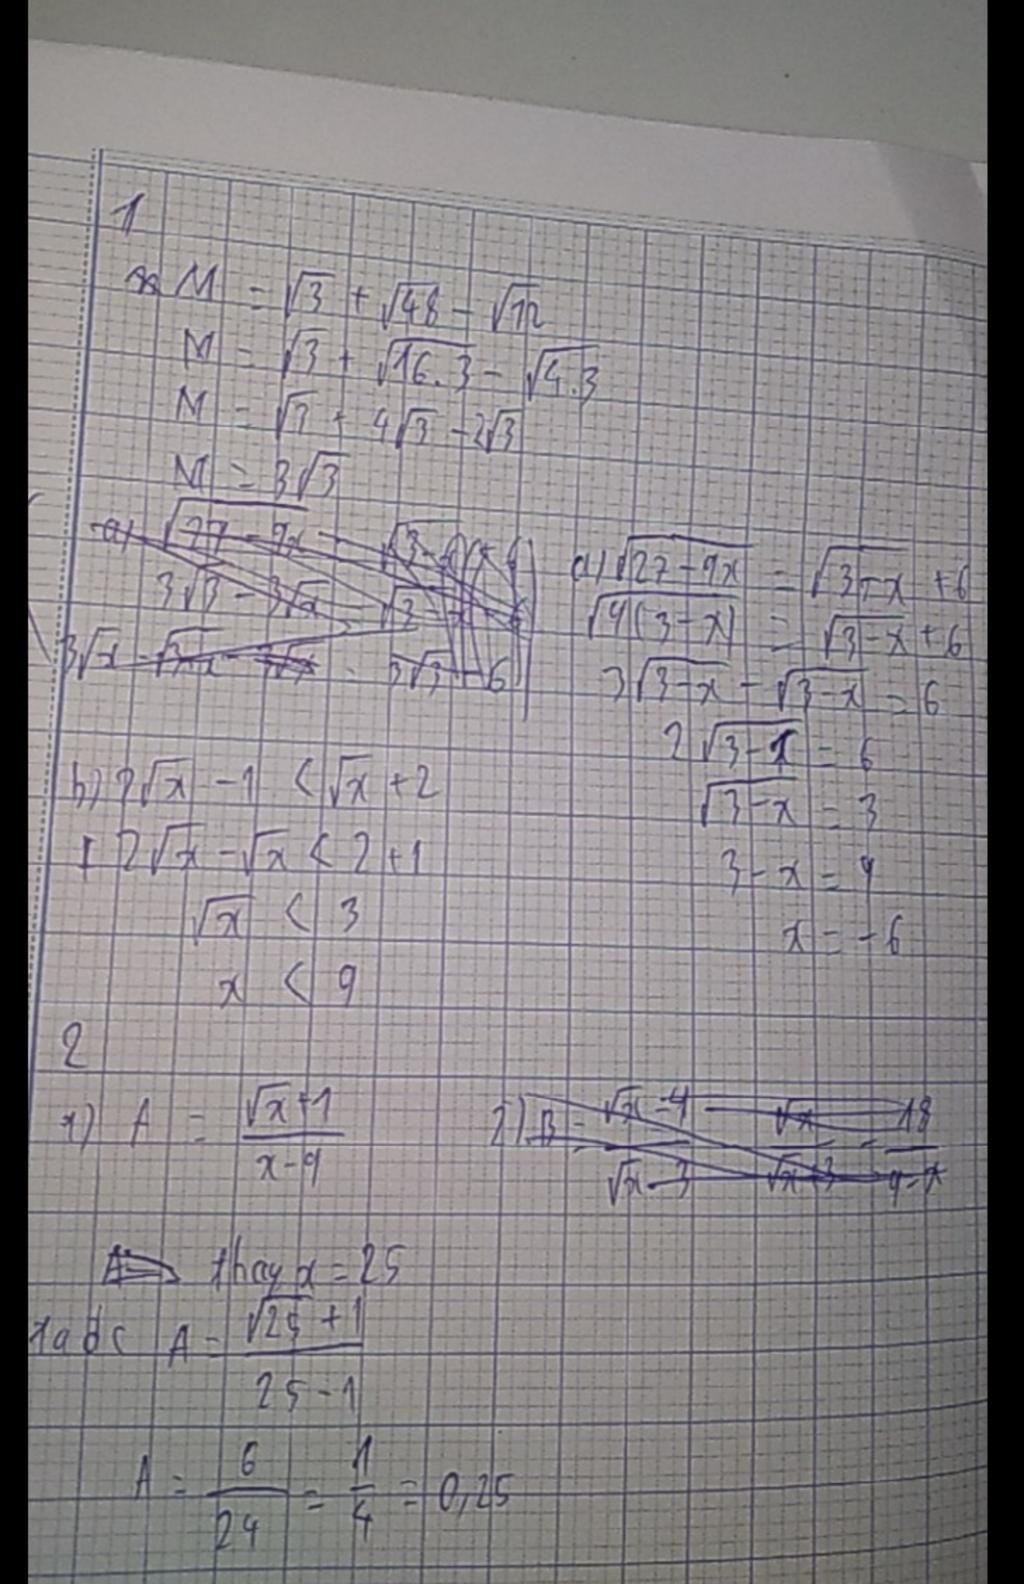 1
M = √3 + √48 - √12
M = √3 + √16.3 - √4.3
M = √3 + 4√3 - 2√3
M = 3√3
a) √27-9x = √3-x + 6
√9(3-x) = √3-x + 6
3√3-x - √3-x = 6
2√3-x = 6
√3-x = 3
3-x = 9
x = -6
b) 2√x - 1 < √x + 2
2√x - √x < 2+1
√x < 3
x < 9
2
1) A = √x+1 / x-9
2) B = √x-4 / √x-3 √x / √x+3 - 18 / 9-x
thay x = 25
ta đc A = √25+1 / 25-1
A = 6/24 = 1/4 = 0,25